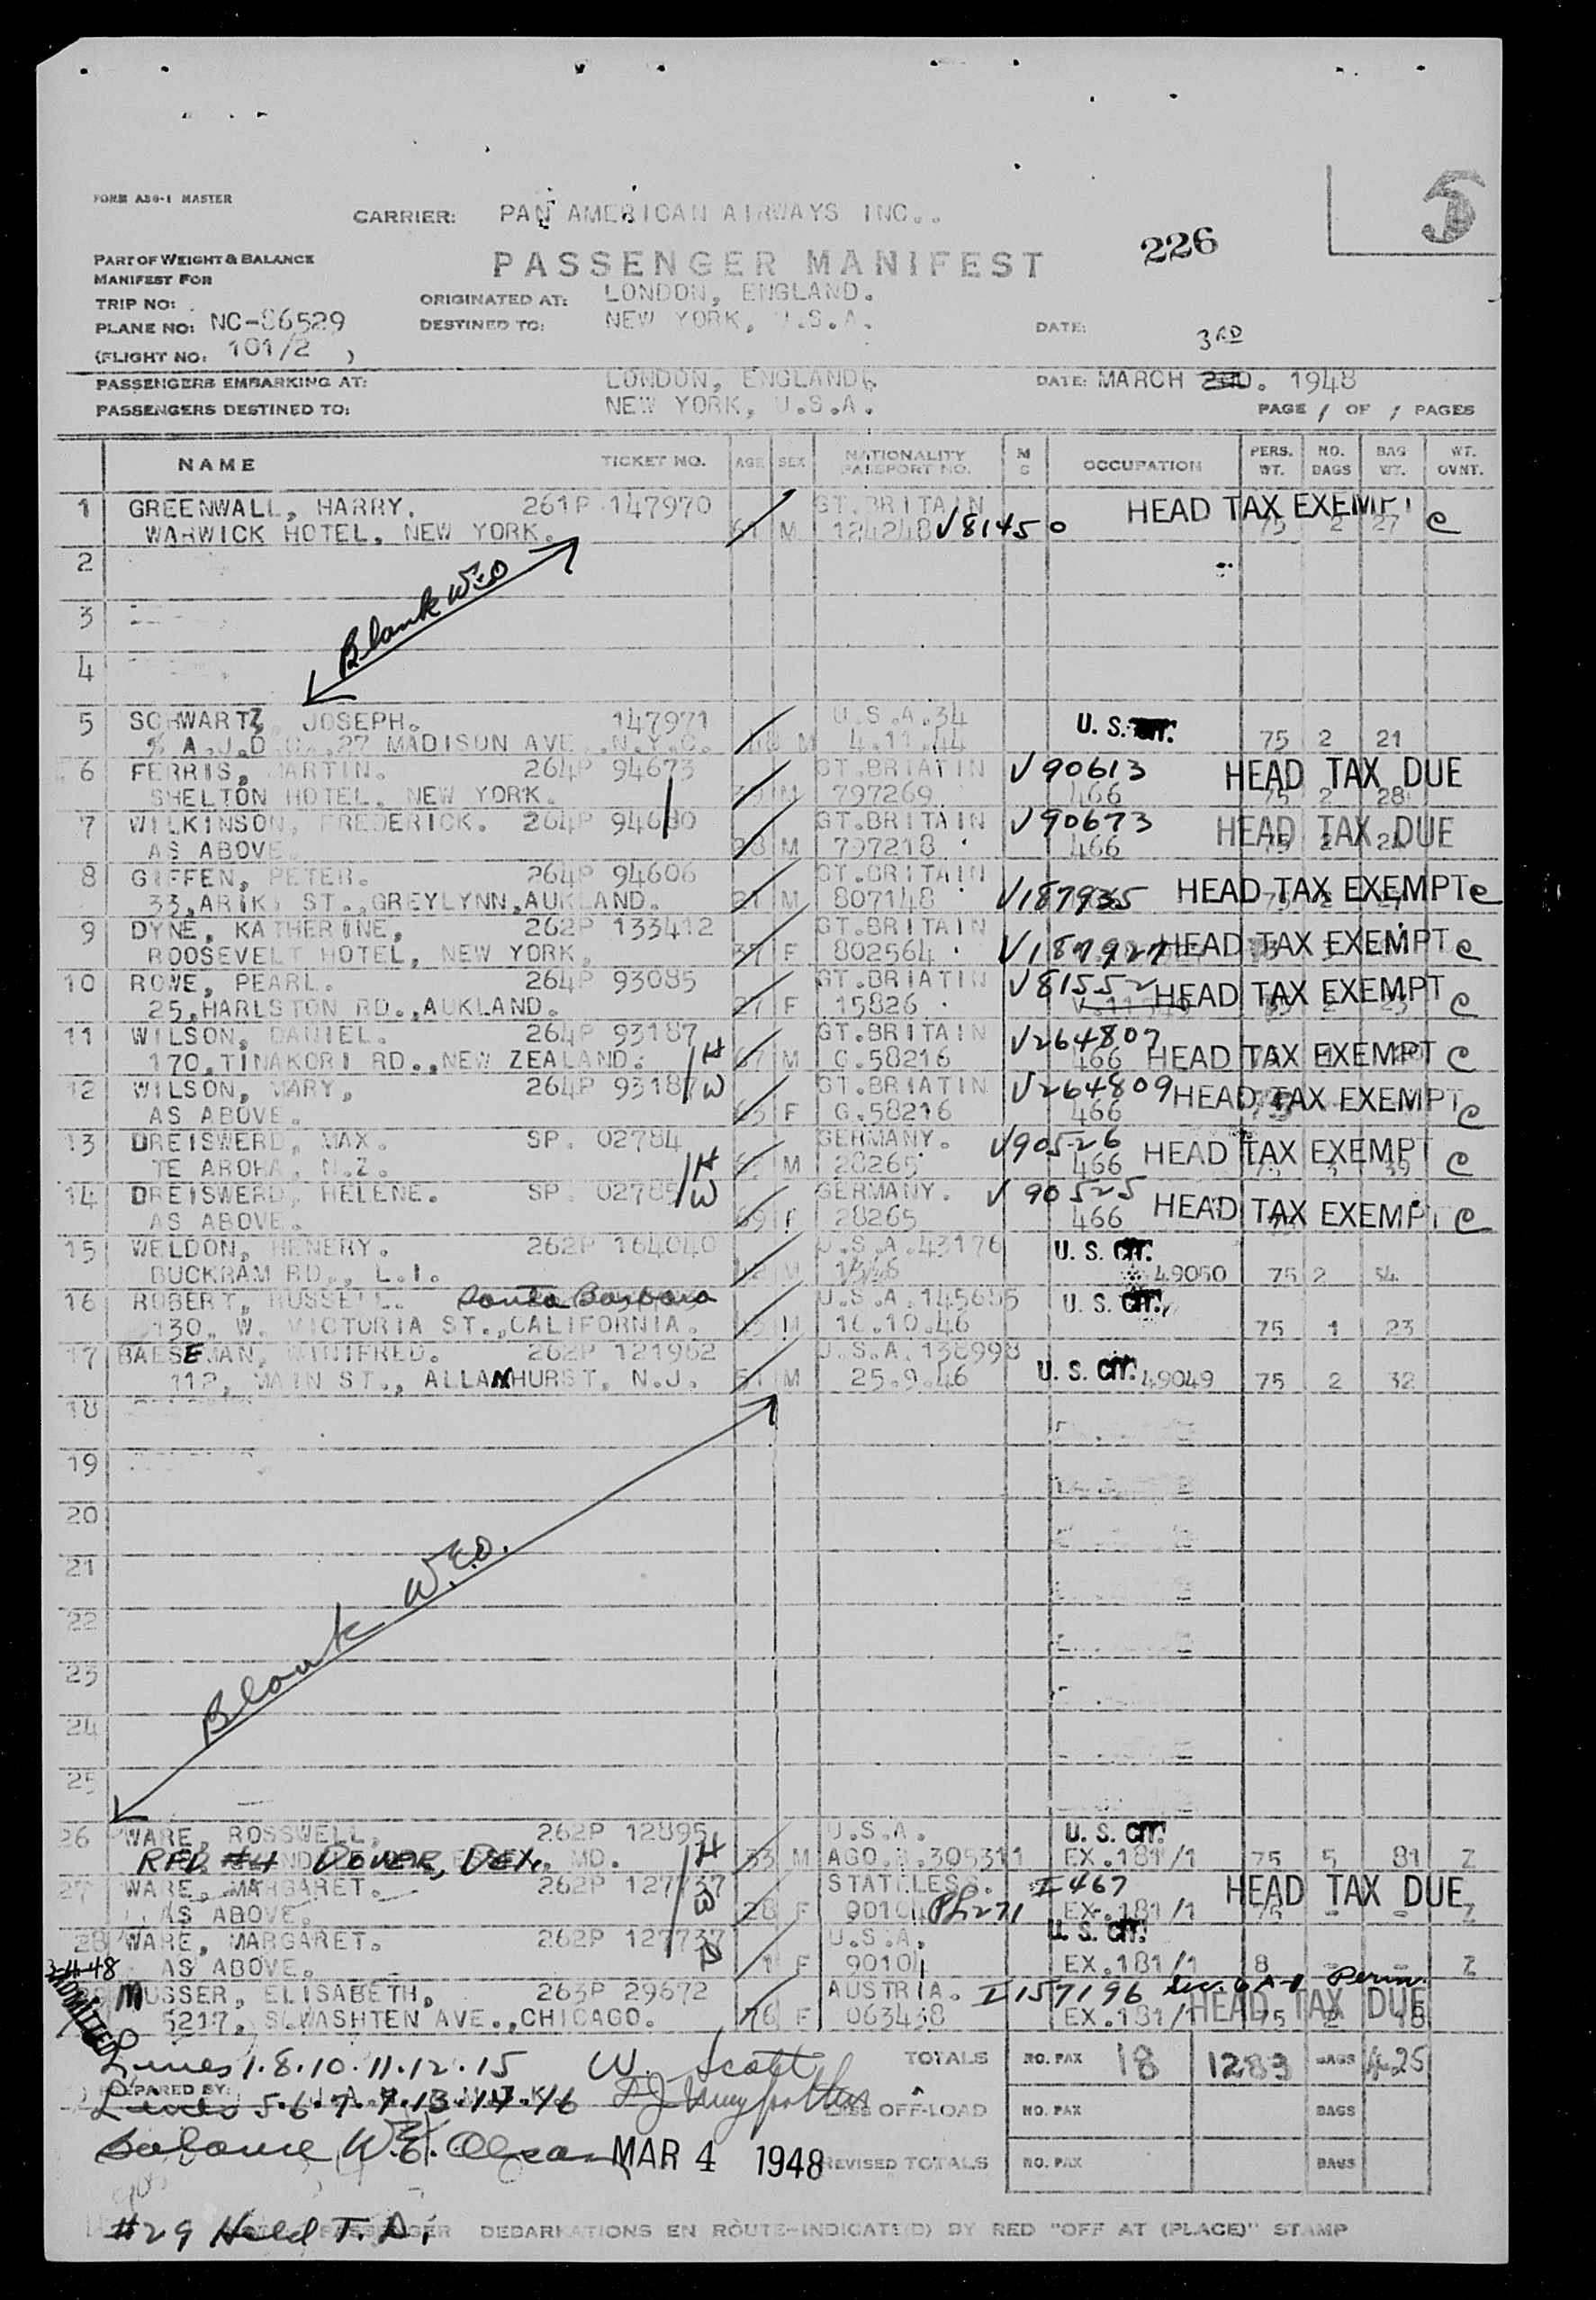 5
FORM ABG-1 MASTER
CARRIER: PAN AMERICAN AIRWAYS INC..
226
PASSENGER MANIFEST
PART OF WEIGHT & BALANCE
MANIFEST FOR
TRIP NO:
ORIGINATED AT: LONDON, ENGLAND.
PLANE NO: NC-86529
DESTINED TO: NEW YORK, U.S.A.
DATE:
(FLIGHT NO: 101/2 )
3RD
PASSENGERS EMBARKING AT: LONDON, ENGLAND.
DATE: MARCH 2ND. 1948
PASSENGERS DESTINED TO: NEW YORK, U.S.A.
PAGE 1 OF 1 PAGES
NAME TICKET NO. AGE SEX NATIONALITY PASSPORT NO. M S OCCUPATION PERS. WT. NO. BAGS BAG WT. WT. OVNT.
1 GREENWALL, HARRY. 261P 147970 GT.BRITAIN HEAD TAX EXEMPT
WARWICK HOTEL, NEW YORK. 61 M 124248 V81450 75 2 27 C
2
Blank WEO
3
4
5 SCHWARTZ, JOSEPH. 147971 U.S.A.34 U.S. CIT.
% A.J.D.C., 27 MADISON AVE., N.Y.C. M 4.11.44 75 2 21
6 FERRIS, MARTIN. 264P 94673 GT.BRIATIN V90613 HEAD TAX DUE
SHELTON HOTEL, NEW YORK. M 797269 466 75 2 28
7 WILKINSON, FREDERICK. 264P 94680 GT.BRITAIN V90673 HEAD TAX DUE
AS ABOVE. 28 M 797218 466 75 2
8 GIFFEN, PETER. 264P 94606 GT.BRITAIN HEAD TAX EXEMPT C
33, ARIKI ST., GREYLYNN, AUKLAND. 21 M 807148 V187935
9 DYNE, KATHERINE, 262P 133412 GT.BRITAIN HEAD TAX EXEMPT C
ROOSEVELT HOTEL, NEW YORK. 37 F 802564 V187927
10 ROWE, PEARL. 264P 93085 GT.BRIATIN V81552 HEAD TAX EXEMPT C
25, HARLSTON RD., AUKLAND. 27 F 15826
11 WILSON, DANIEL. 264P 93187 GT.BRITAIN V264807
170, TINAKORI RD., NEW ZEALAND. H 67 M C.58216 466 HEAD TAX EXEMPT C
12 WILSON, MARY, 264P 93187 W GT.BRIATIN V264809 HEAD TAX EXEMPT
AS ABOVE. 63 F C.58216 466 C
13 DREISWERD, MAX. SP. 02784 GERMANY. V90526 HEAD TAX EXEMPT
TE AROHA, N.Z. H M 28265 466 75 3 39 C
14 DREISWERD, HELENE. SP. 02785 W GERMANY. V90525 HEAD TAX EXEMPT
AS ABOVE. 69 F 28265 466 C
15 WELDON, HENERY. 262P 164040 U.S.A.43176 U.S. CIT.
BUCKRAM RD., L.I. M 49050 75 2 54
16 ROBERT, RUSSELL. Santa Barbara U.S.A.145685 U.S. CIT.
130. W. VICTORIA ST., CALIFORNIA. M 16.10.46 75 1 23
17 BAESEMAN, WINIFRED. 262P 121962 U.S.A.138998
112, MAIN ST., ALLANHURST, N.J. 51 M 25.9.46 U.S. CIT. 49049 75 2 32
18
19
20
21
Blank W.E.O.
22
23
24
25
26 WARE, ROSSWELL, 262P 12895 U.S.A. U.S. CIT.
RFD #4 DOVER, DEL. MD. H 33 M AGO.B.305311 EX.181/1 75 5 81 Z
27 WARE, MARGARET. 262P 127737 W STATELESS. I467 HEAD TAX DUE
AS ABOVE. 28 F 90104 Ph271 EX.181/1 75 - - Z
28 WARE, MARGARET. 262P 127737 D U.S.A. U.S. CIT.
3-4-48 AS ABOVE. 1 F 90104 EX.181/1 8 - - Z
ADMITTED MUSSER, ELISABETH, 263P 29672 AUSTRIA. I157196 Sec. 6A-1 Perm. HEAD TAX DUE
5217, S.WASHTEN AVE., CHICAGO. 76 F 063438 EX.181/1 75 2 18
Lines 1.8.10.11.12.15 W. Scott
TOTALS NO. PAX 18 1283 BAGS 425
PREPARED BY:
Lines 5.6.7.9.13.14.16
LESS OFF-LOAD NO. PAX BAGS
Balance W.E. Olsen MAR 4 1948
REVISED TOTALS NO. PAX BAGS
#29 Held T.D.
PASSENGER DEBARKATIONS EN ROUTE-INDICATE(D) BY RED "OFF AT (PLACE)" STAMP